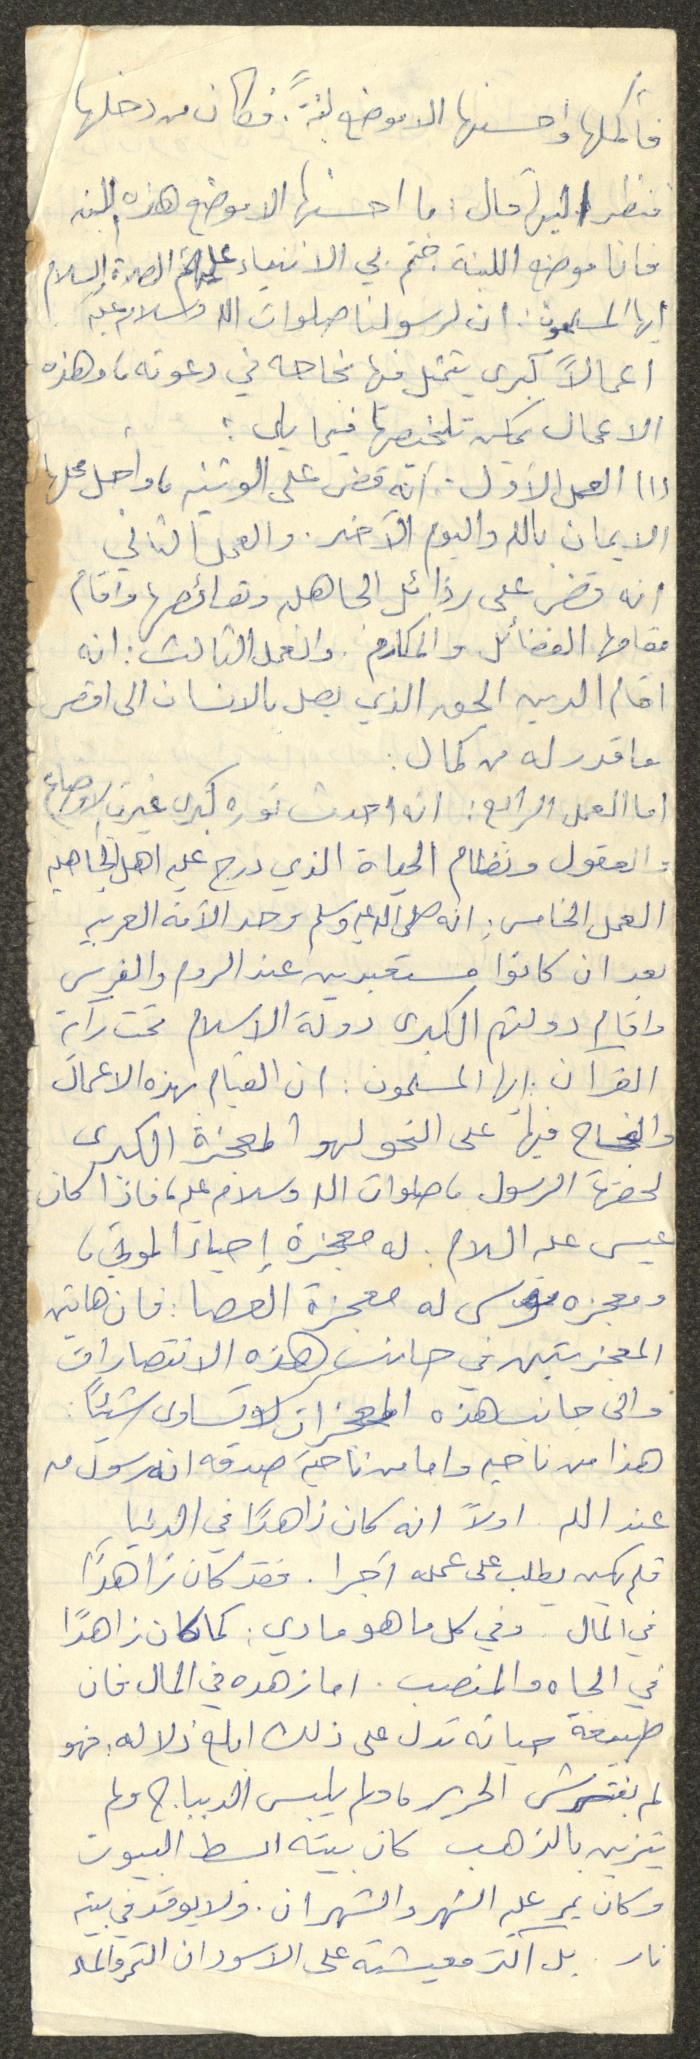 فأكملها وأحسنها الا موضع لبنةً. فكان من دخلها
فنظر اليها قال: ما احسنها الا موضع هذه اللبنه
فانا موضع اللبنة ختم بي الانبياء عليهم الصلاة والسلام
ايها المسلمون: ان لرسولنا صلوات الله وسلامه عليه
اعمالاً كبرى يتمثل فيها نجاحه في دعوته، وهذه
الاعمال يمكن تلخيصها فيما يلي:
(١) العمل الأول: أنه قضى على الوثنيه، واحل محلها
الايمان بالله واليوم الآخر. والعمل الثاني
انه قضى على رذائل الجاهليه ونقائصها واقام
مقامها الفضائل والمكارم. والعمل الثالث: انه
اقام الدين الحق الذي يصل بالانسان الى اقصى
ما قدر له من كمال:
اما العمل الرابع: انه احدث ثوره كبرى غيرت الاوضاع
والعقول ونظام الحياة الذي درج عليه اهل الجاهليه
العمل الخامس: انه صلى الله عليه وسلم وحد الأمة العربيه
بعد ان كانوا مستعبدين عند الروم والفرس
واقام دولتهم الكبرى دولة الاسلام تحت راية
القرآن: ايها المسلمون: ان القيام بهذه الاعمال
والنجاح فيها على النحو لهو المعجزة الكبرى
لحضرة الرسول، صلوات الله وسلامه عليه، فاذا كان
عيسى عليه السلام: له معجزة إحياء الموتى،
ومعجزه موسى له معجزة العصا: فان هاتين
المعجزيتين في جانب هذه الانتصارات
والى جانب هذه المعجزات لا تساوى شيئاً:
هذا من ناحيه واما من ناحية صدقه انه رسول من
عند الله. اولاً انه كان زاهدًا في الدنيا
فلم يكن يطلب على عمله اجرا. فقد كان زاهدًا
في المال. وفي كل ما هو مادي: كما كان زاهدًا
في الجاه والمنصب. اما زهده في المال فان
طبيعة حياته تدل على ذلك ابلغ دلاله: فهو
لم يفترش الحرير، ولم يلبس الديباج ولم
يتزين بالذهب كان بيته ابسط البيوت
وكان يمر عليه الشهر والشهران. ولا يوقد في بيته
نار. بل اكثر معيشته على الاسودان التمر والماء